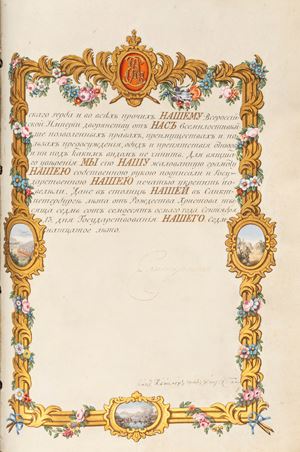 скаго герба и во всѣхъ прочихъ НАШЕМУ Всероссій
ской Имперіи дворянству отъ НАСЪ всемилостивѣй
ше пожалованныхъ правахъ, преимуществахъ и
предосужденія, обидъ и препятствія
ни подъ какимъ видомъ не чинить. Для вящша
го увѣренія МЫ сію НАШУ жалованную грамоту
НАШЕЮ собственною рукою подписали и Госу-
дарственною НАШЕЮ печатью укрѣпить по-
велѣли. Дана въ столицѣ НАШЕЙ въ Санкт-
петербургѣ лѣта отъ Рождества Христова ты
сяща седмь сотъ семдесятъ осмаго года Сентября
дня Государствованія НАШЕГО седм-
надцатое лѣто.
Екатерина